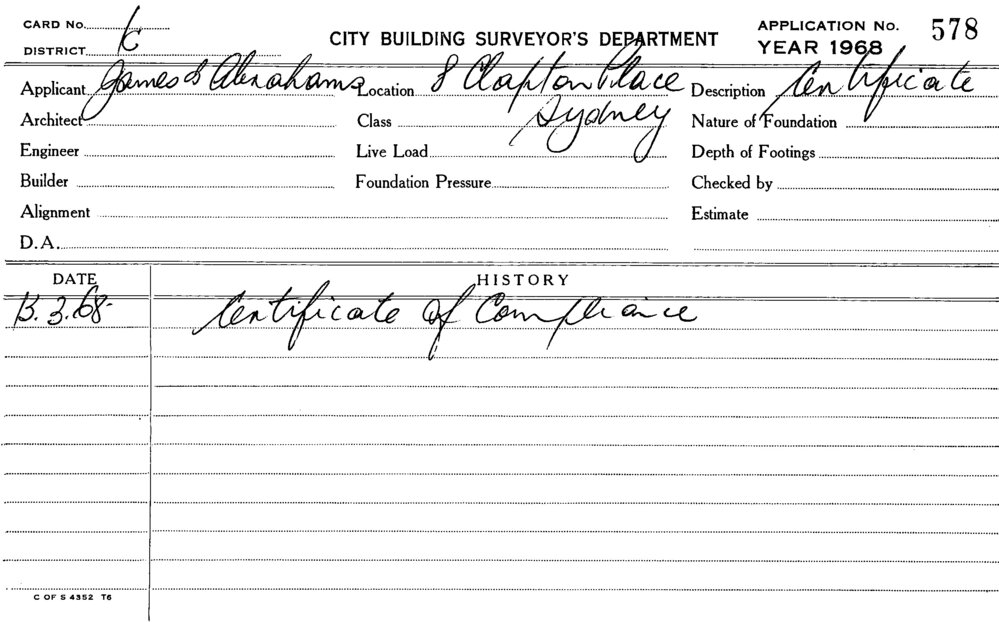 CARD No.
DISTRICT
CITY BUILDING SURVEYOR'S DEPARTMENT
APPLICATION No. 578
YEAR 1968
Applicant James Abrahams Location 8 Clapton Place Description Certificate
Sydney
Architect Class Nature of Foundation
Engineer Live Load Depth of Footings
Builder Foundation Pressure Checked by
Alignment Estimate
D.A.
DATE HISTORY
13.3.68 Certificate of Compliance
C OF S 4352 T6